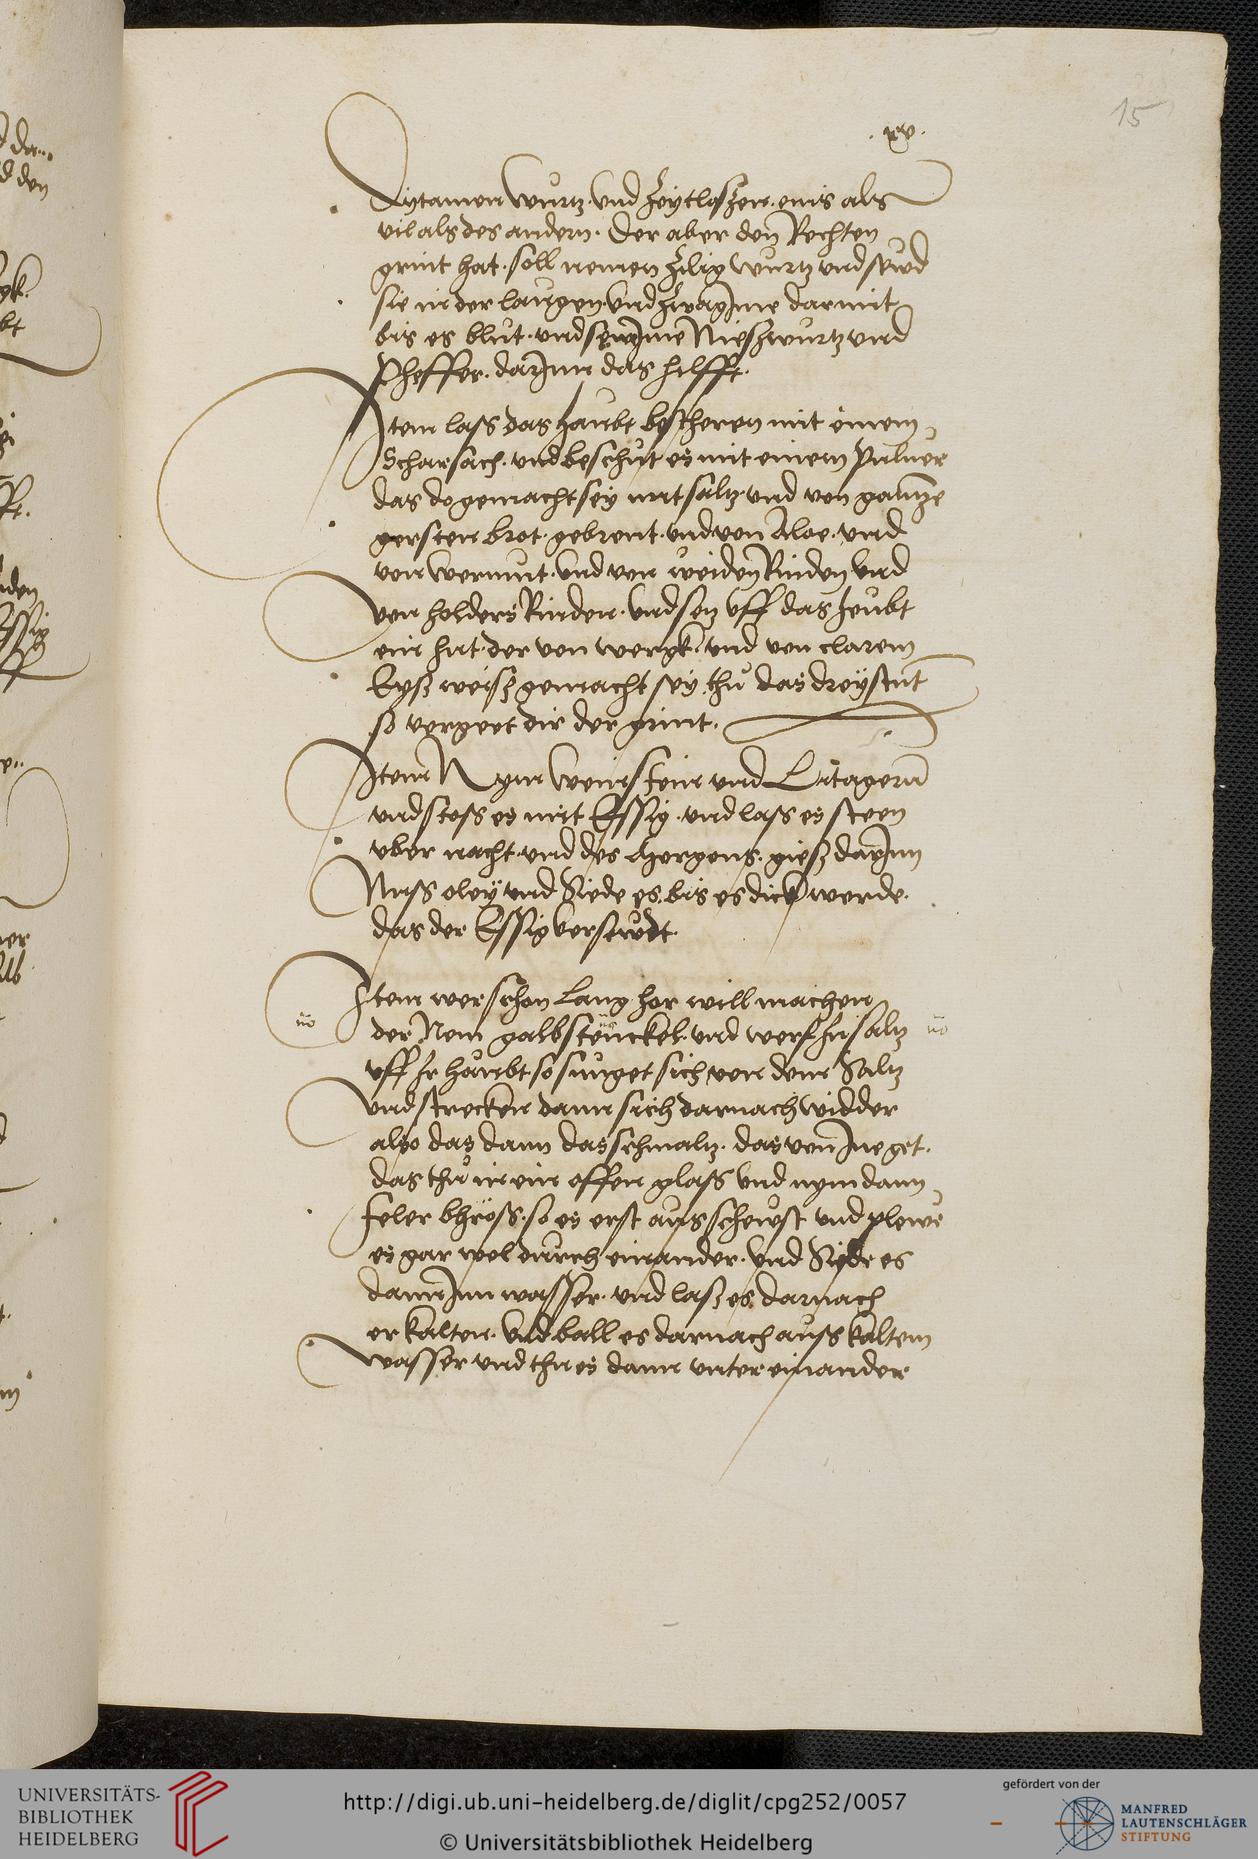 15
.xv.
Dytamen wurtz vnd Zeytloszen. eins als
vil als des andern. Der aber den Rechten
grint hat. soll nemen Zilig wurtz vnd seud
sie in der laugen. vnd Zwag Ime darmit
bis es blut. vnd sewe Ime Nieszwurtz vnd
Pheffer. dar Inn das hilfft.
Item lass das haubt bescheren mit einem
Scharsach. vnd beschut es mit einem Puluer
das do gemacht sey mit saltz vnd von gantze
gersten brot. gebrent. vnd von Aloe. vnd
von wermut. vnd von weiden Rinden vnd
von holders Rinden. vnd setz vff das heubt
ein hut. der von wergk vnd von clarem
Eyß weisz gemacht sey. thu das dreystut
so vergeet dir der grint.
Item Nym weinstein vnd Litagerū
vnd stoss es mit Essig. vnd lass es steen
vber nacht. vnd des Morgens. giesz dar Inn
Nuss oley vnd Siede es. bis es dick werde.
das der Essig verseudt.
Item wer schon lang hor will machen
der Nem galbstuckel. vnd werf In saltz
vff Ir haubt. so suget sich von dem Saltz
vnd strecken dann sich darnach widder
also das dann das schmaltz. das von Ine get.
das thu in ein offen glass vnd nym dann
so es erst aus schewst vnd plewe
es gar wol durch einander. vnd Siede es
dann Inn wasser. vnd lasz es darnach
erkalten. vnd ball es darnach auss kaltem
wasser vnd thu es dann vnter einander
UNIVERSITÄTS-
BIBLIOTHEK
HEIDELBERG
http://digi.ub.uni-heidelberg.de/diglit/cpg252/0057
© Universitätsbibliothek Heidelberg
gefördert von der
MANFRED
LAUTENSCHLÄGER
STIFTUNG